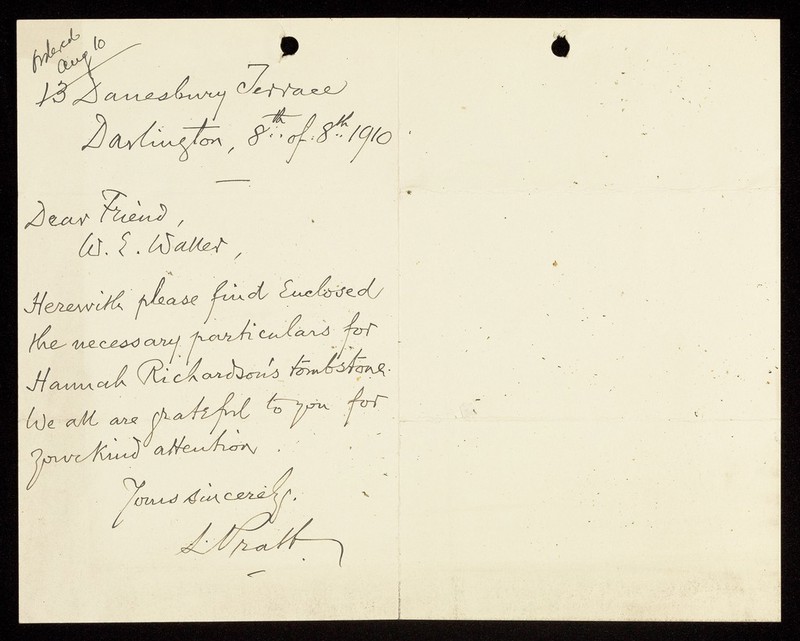 Ordered
Aug 10
13 Danesbury Terrace
Darlington, 8th of 8th 1910
Dear Friend,
W. E. Walker,
Herewith please find Enclosed
the necessary particulars for
Hannah Richardson's tombstone.
We all are grateful to you for
your kind attention.
Yours sincerely.
L. Pratt.